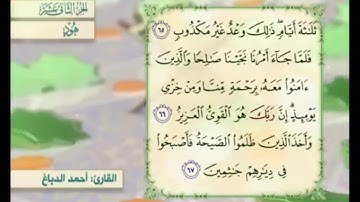 الجزء الثاني عشر
هُود
ثَلَٰثَةَ أَيَّامٍ ذَٰلِكَ وَعْدٌ غَيْرُ مَكْذُوبٍ ٦٥
فَلَمَّا جَآءَ أَمْرُنَا نَجَّيْنَا صَٰلِحًا وَٱلَّذِينَ
ءَامَنُوا۟ مَعَهُۥ بِرَحْمَةٍ مِّنَّا وَمِنْ خِزْىِ
يَوْمِئِذٍ إِنَّ رَبَّكَ هُوَ ٱلْقَوِىُّ ٱلْعَزِيزُ ٦٦
وَأَخَذَ ٱلَّذِينَ ظَلَمُوا۟ ٱلصَّيْحَةُ فَأَصْبَحُوا۟
فِى دِيَٰرِهِمْ جَٰثِمِينَ ٦٧
القارئ: أحمد الدباغ